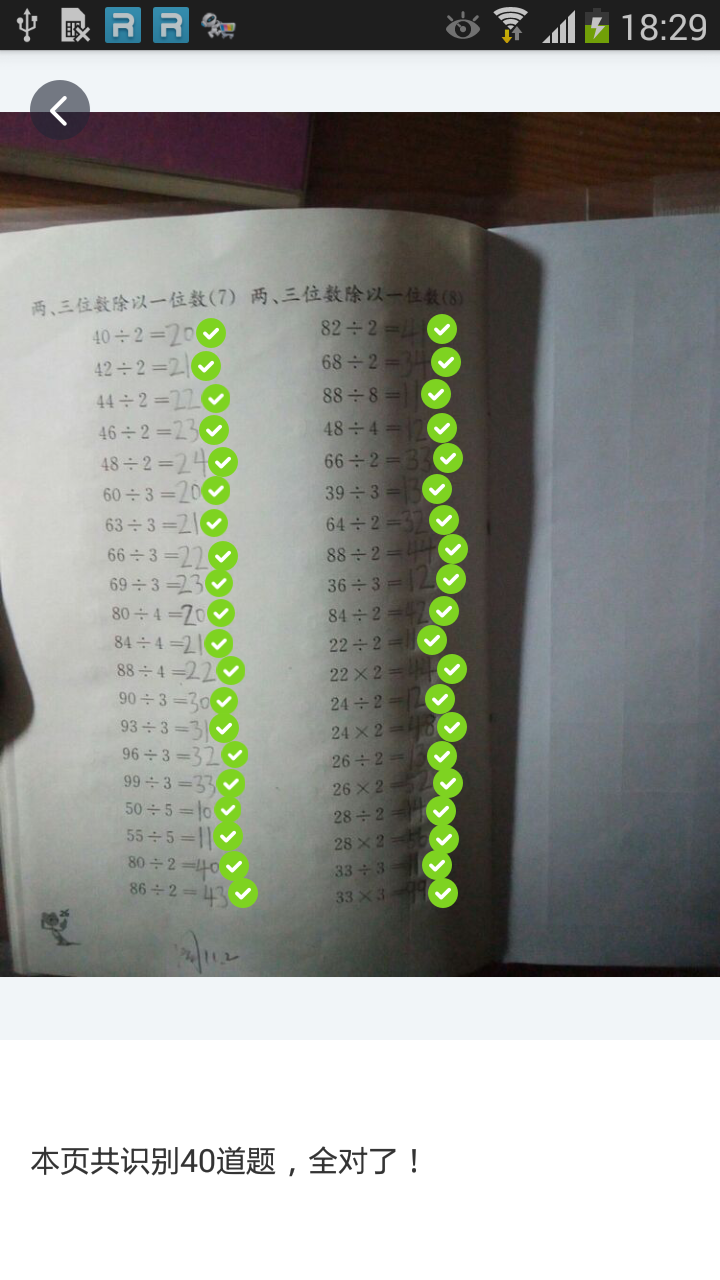 18:29
两、三位数除以一位数(7)
40÷2=20
42÷2=21
44÷2=22
46÷2=23
48÷2=24
60÷3=20
63÷3=21
66÷3=22
69÷3=23
80÷4=20
84÷4=21
88÷4=22
90÷3=30
93÷3=31
96÷3=32
99÷3=33
50÷5=10
55÷5=11
80÷2=40
86÷2=43
两、三位数除以一位数(8)
82÷2=41
68÷2=34
88÷8=11
48÷4=12
66÷2=33
39÷3=13
64÷2=32
88÷2=44
36÷3=12
84÷2=42
22÷2=11
22×2=44
24÷2=12
24×2=48
26÷2=13
26×2=52
28÷2=14
28×2=56
33÷3=11
33×3=99
11.2
本页共识别40道题，全对了！